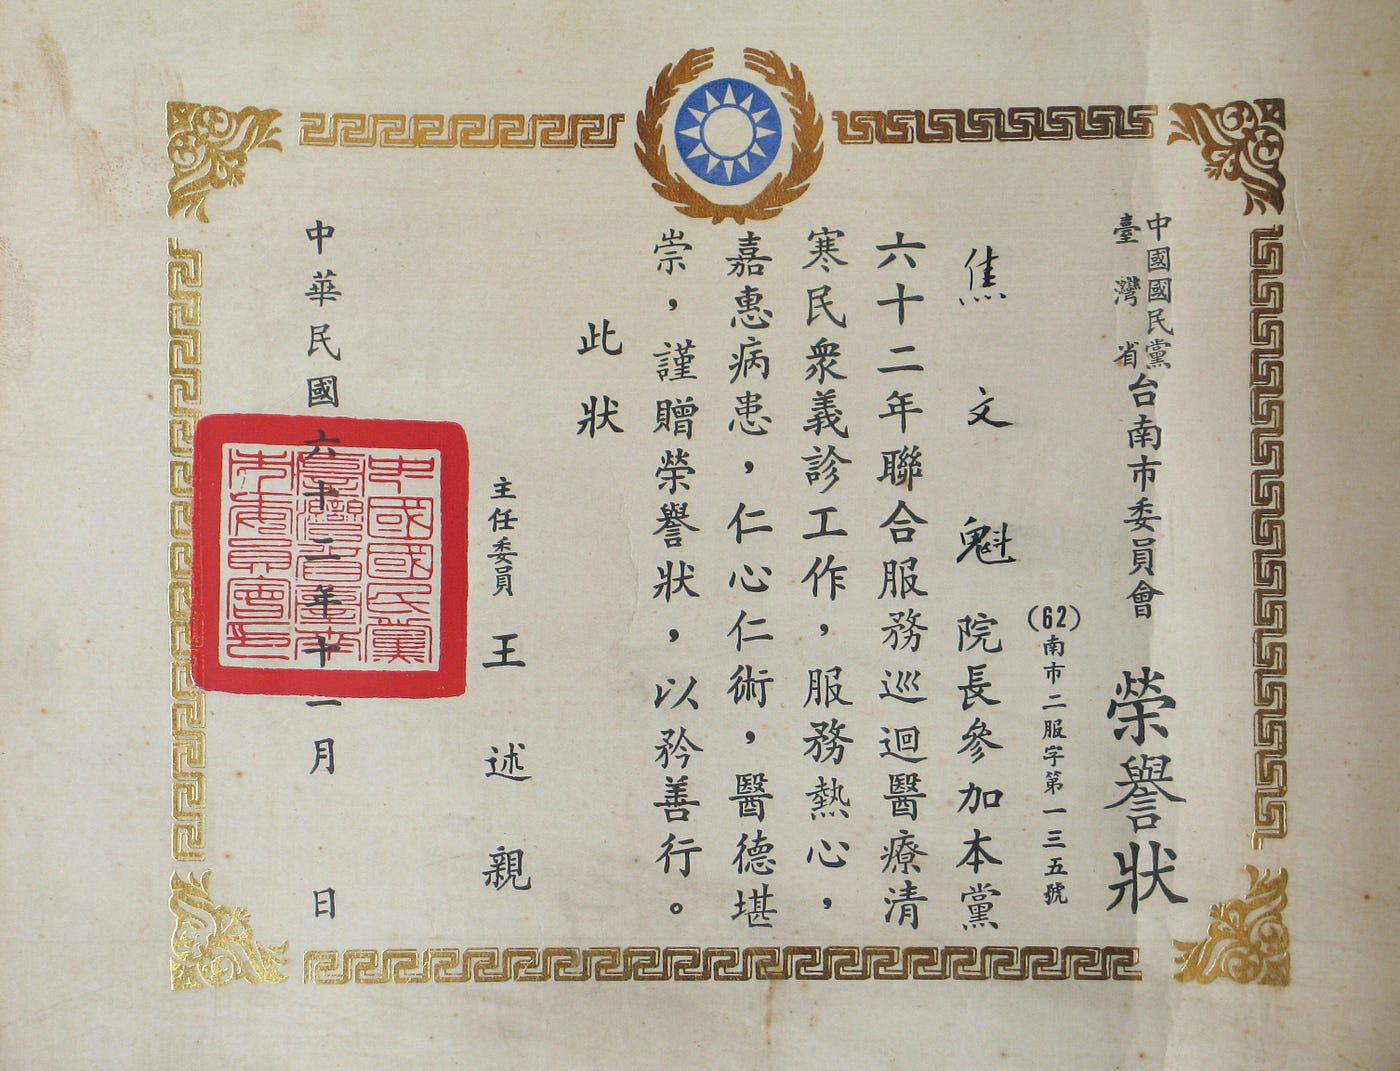 中國國民黨
臺灣省
台南市委員會 榮譽狀
(62)南市二服字第一三五號
焦文魁院長參加本黨
六十二年聯合服務巡迴醫療清
寒民衆義診工作，服務熱心，
嘉惠病患，仁心仁術，醫德堪
崇，謹贈榮譽狀，以矜善行。
此狀
主任委員 王述親
中華民國六十二年十一月 日
中國國民黨
臺灣省臺南
市委員會印